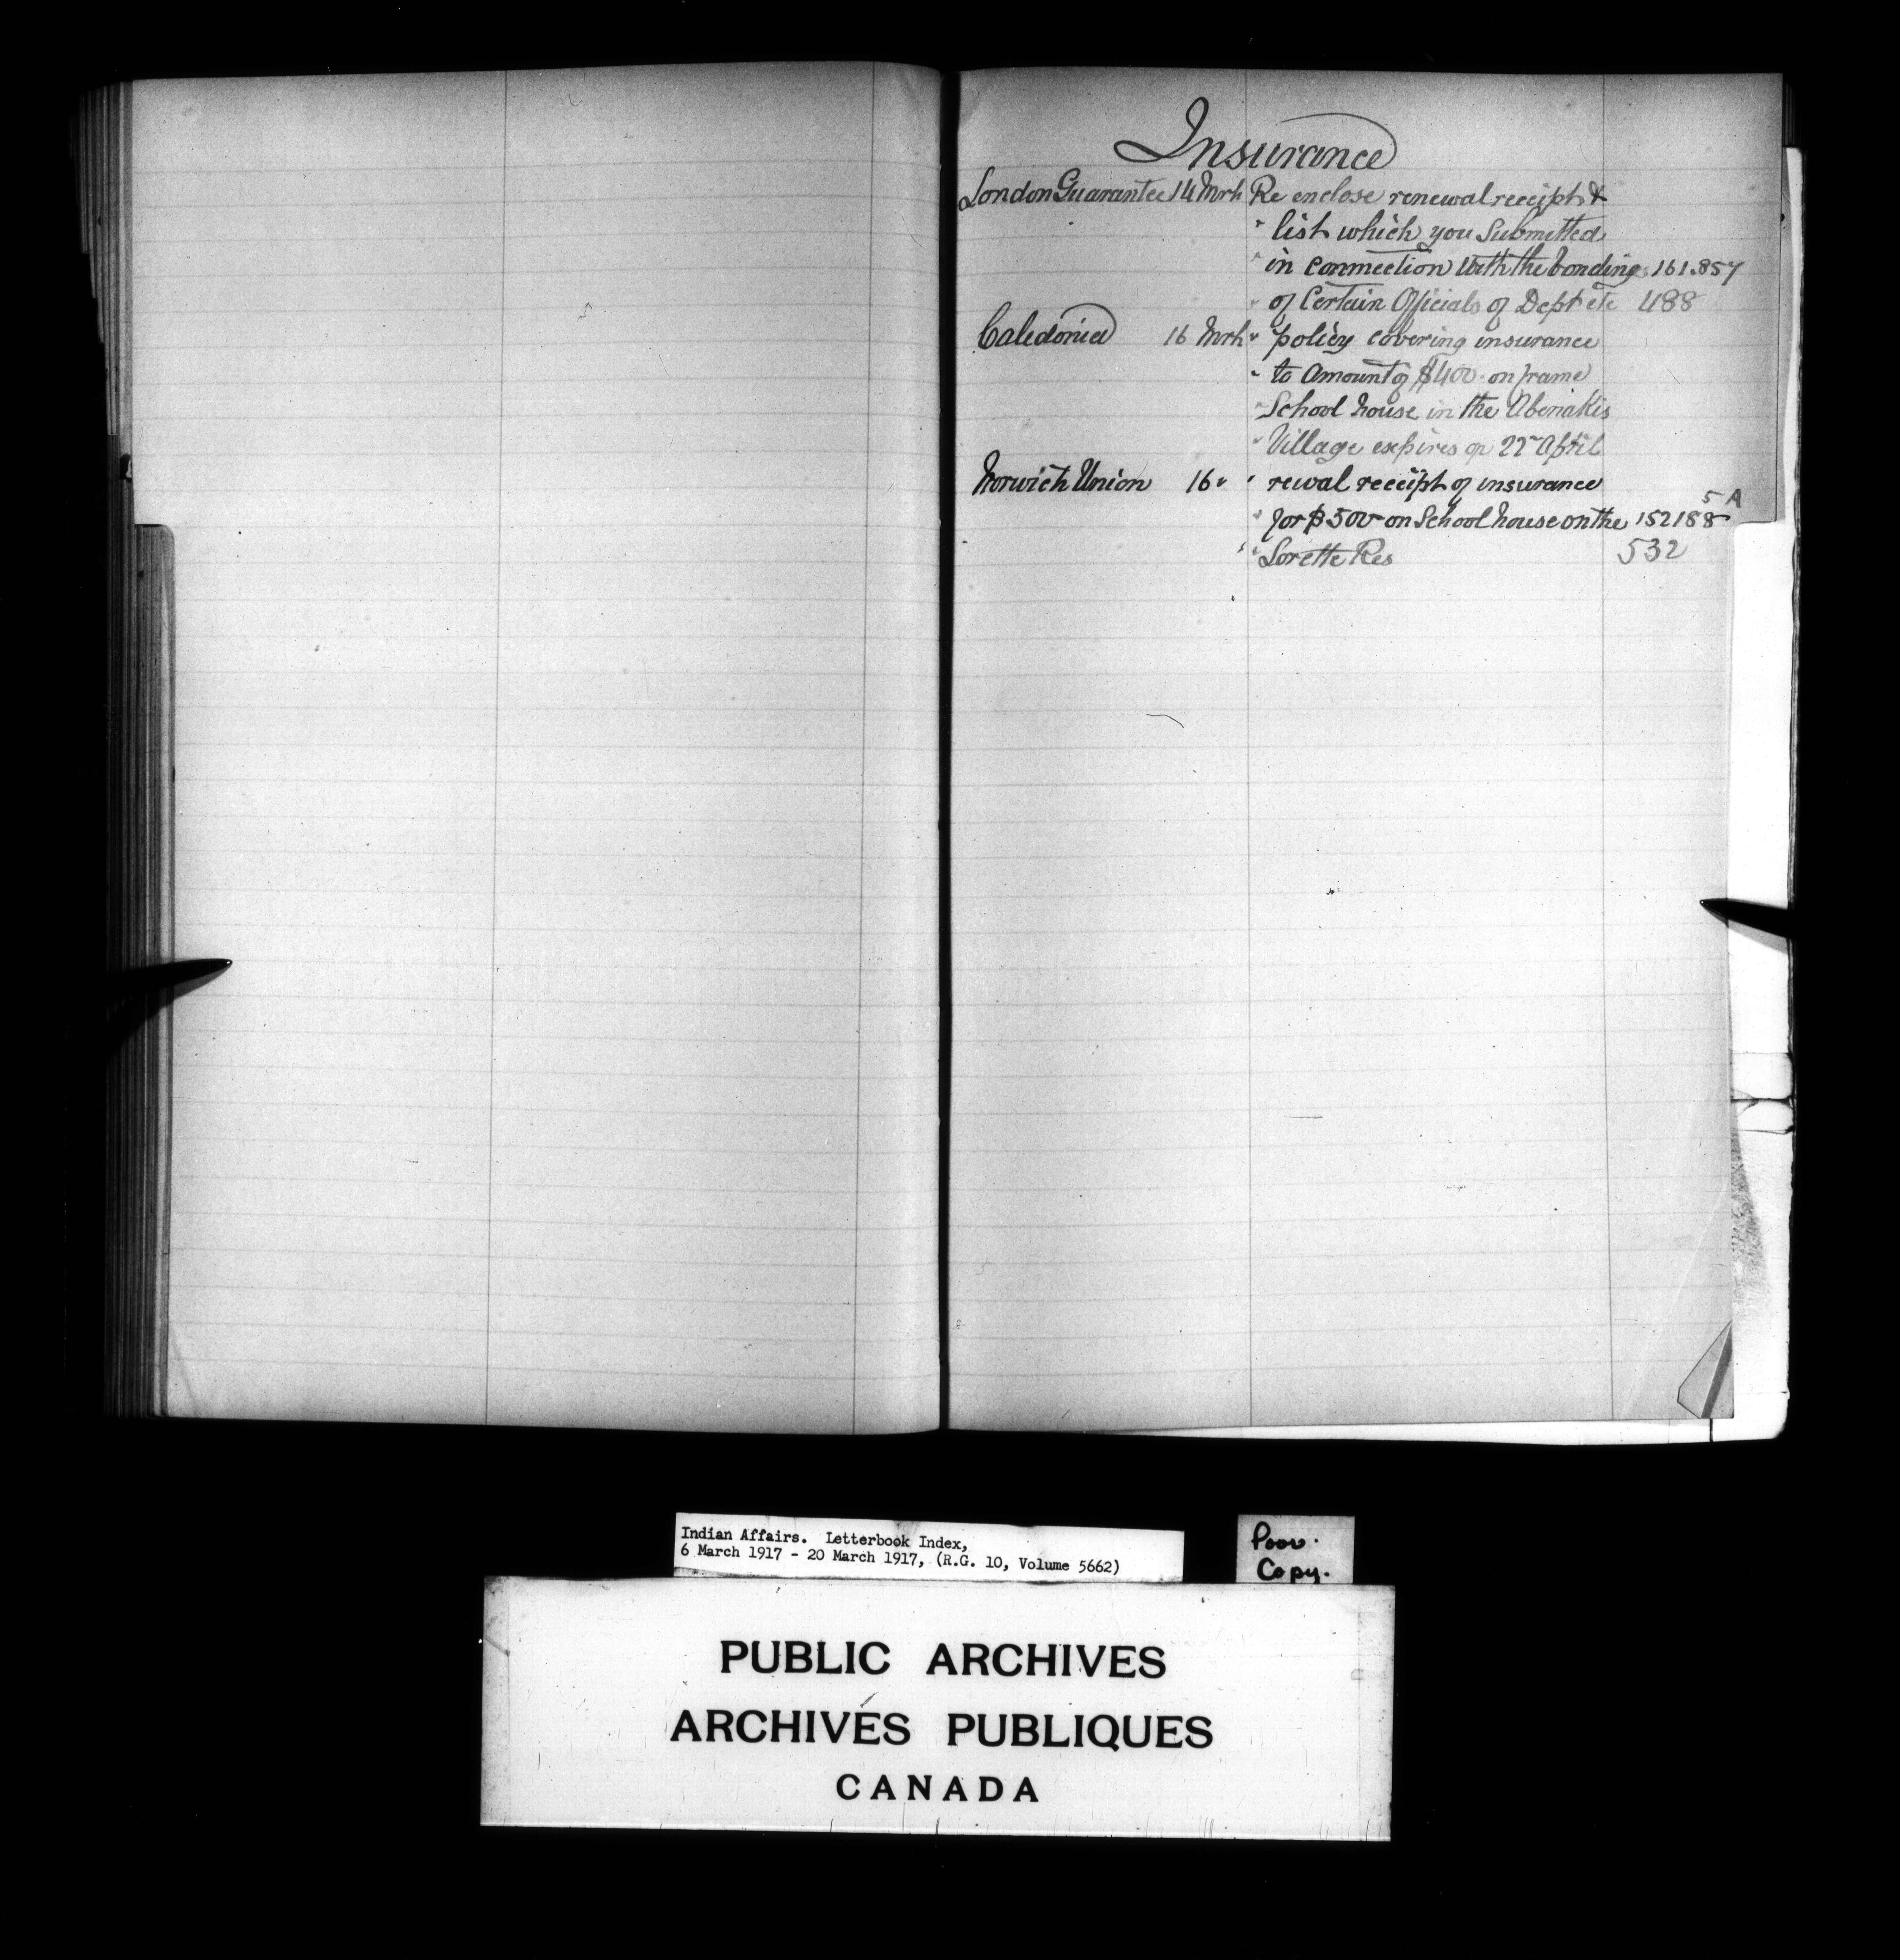 Insurance
London Guarantee 14 Mrh Re enclose renewal receipt &
" list which you Submitted
" in connection with the bonding 161.857
" of Certain Officials of Dept etc 488
Caledonia 16 Mrh " policy covering insurance
" to Amount of $400 - on frame
" School house in the Abenakis
" Village expires on 22 April
Norwich Union 16 " " rewal receipt of insurance
5 A
" for $500 on School house on the 152188
" " Lorette Res 532
Indian Affairs. Letterbook Index,
6 March 1917 - 20 March 1917, (R.G. 10, Volume 5662)
Poor
Copy.
PUBLIC ARCHIVES
ARCHIVES PUBLIQUES
CANADA